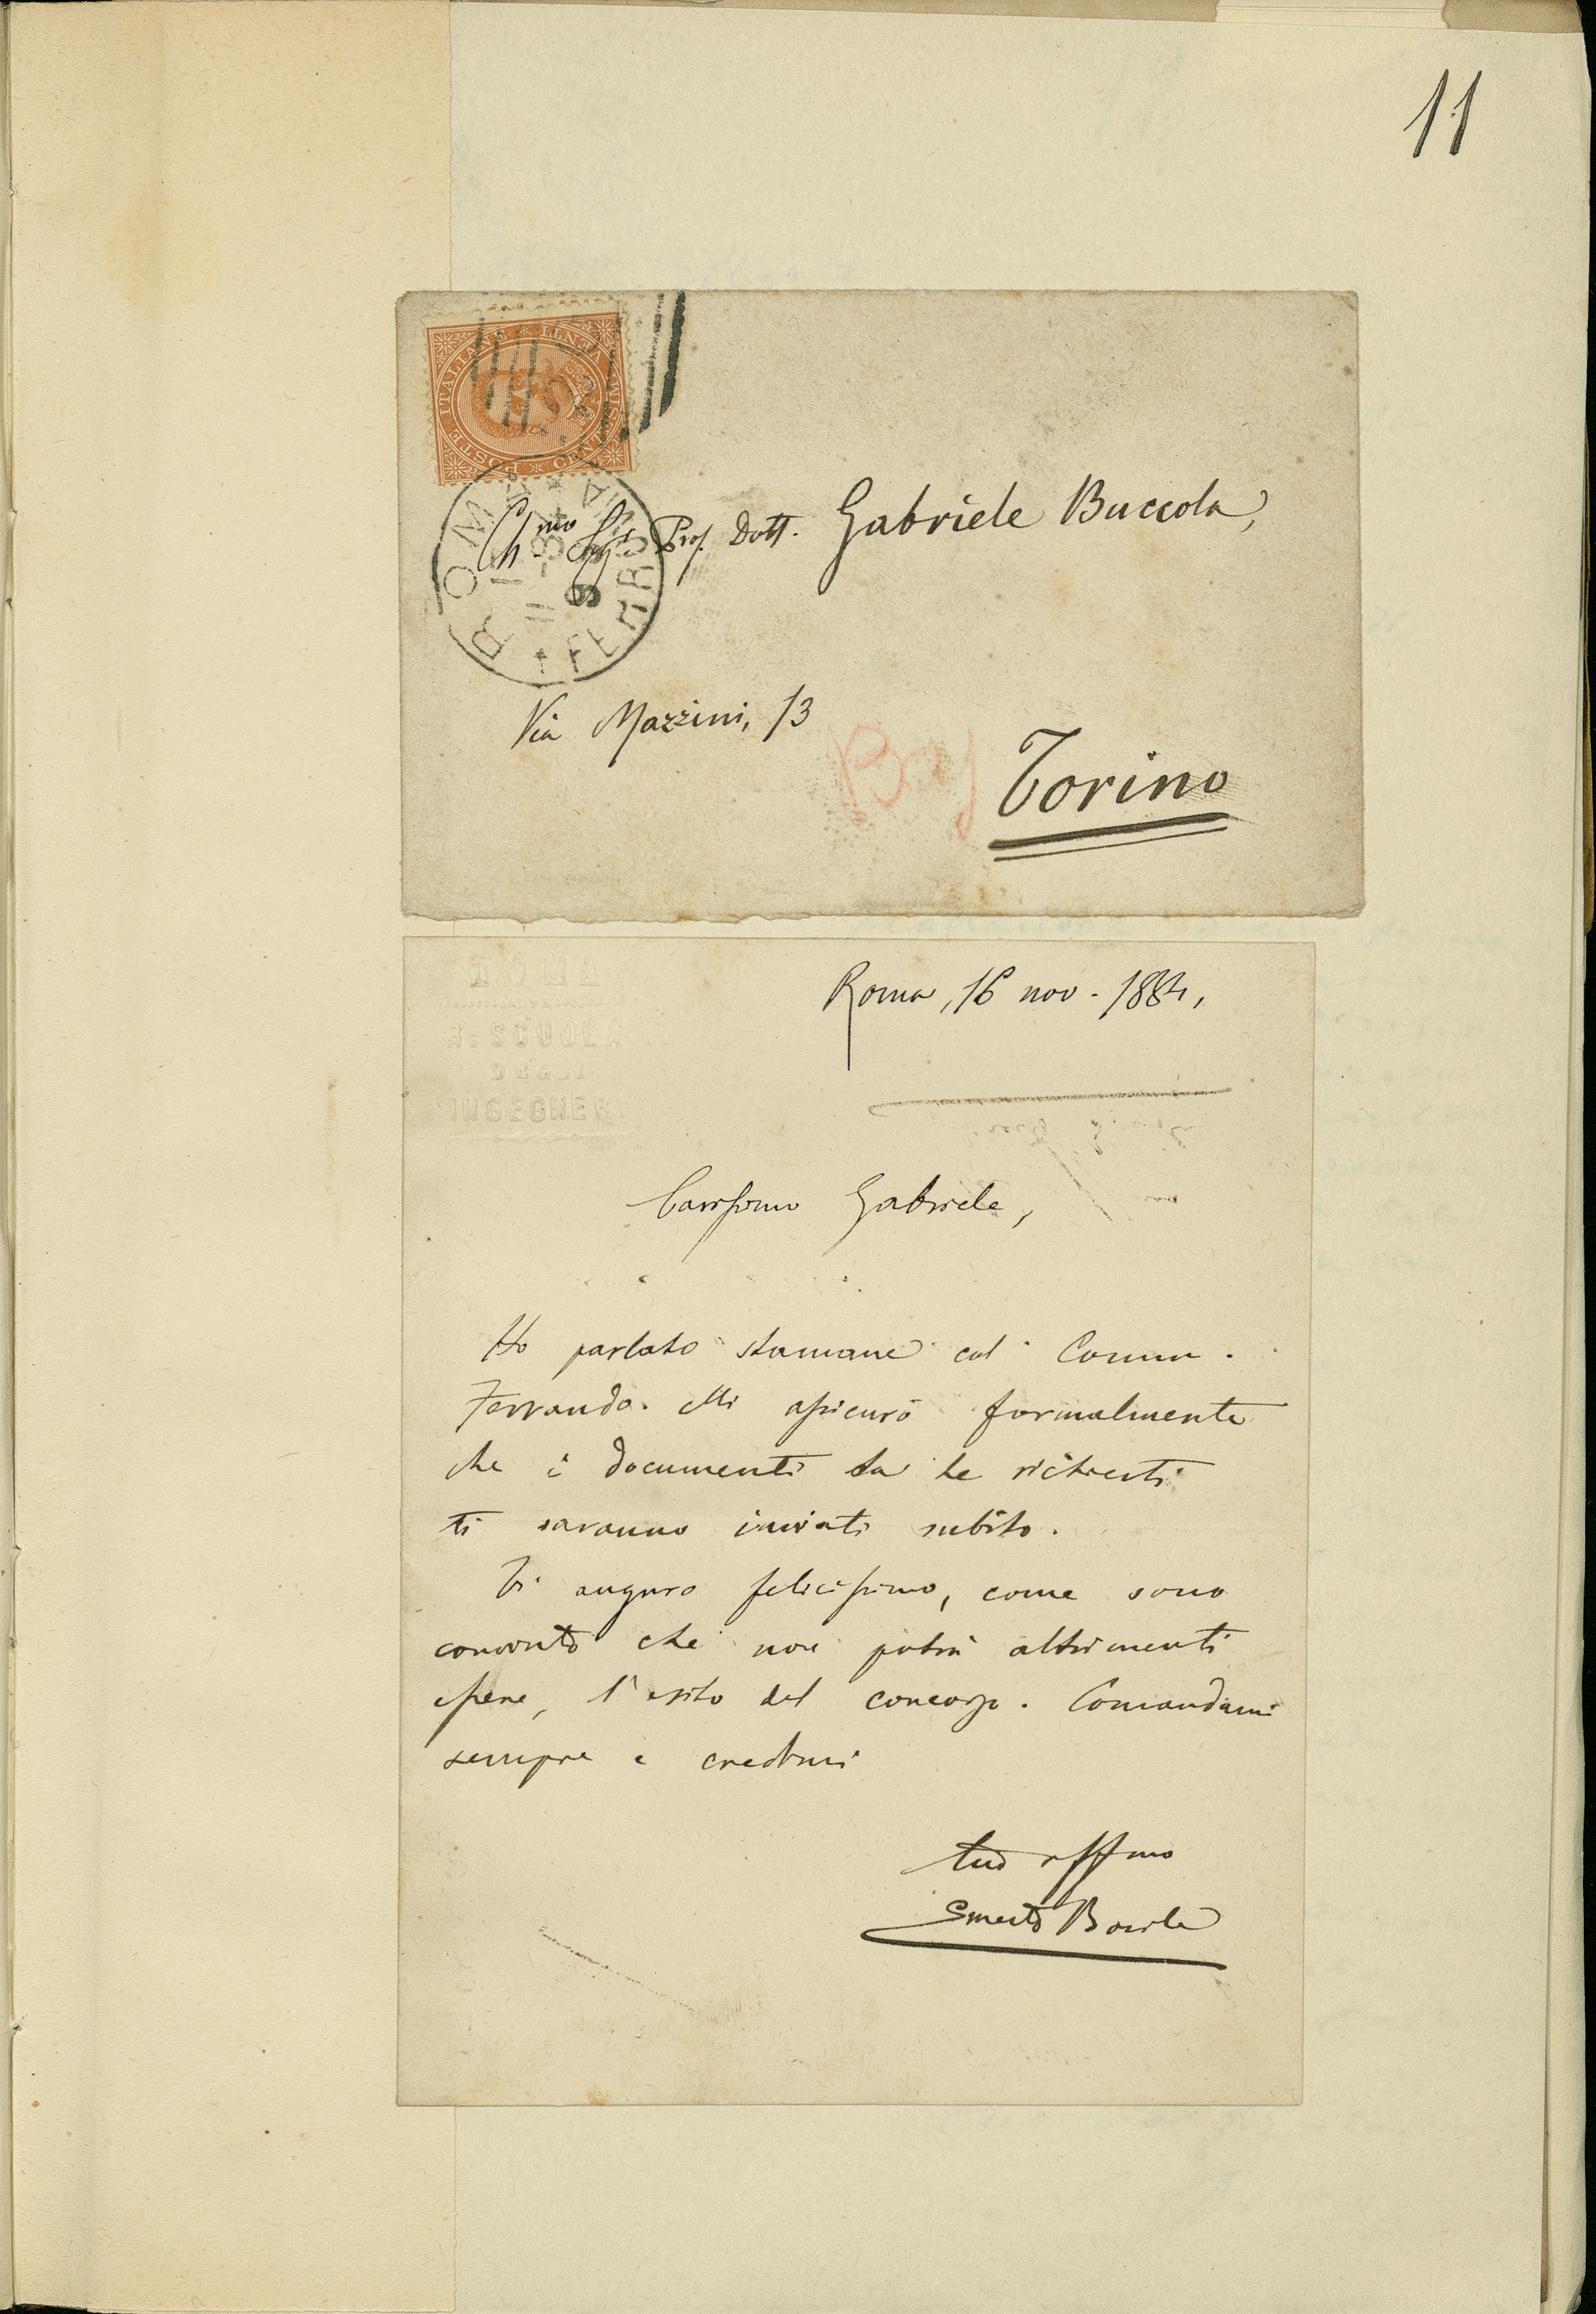 11
POSTE ITALIANE
ROMA
FERROVIA
11-84
Ch.mo Sig. Prof. Dott. Gabriele Buccola,
Via Mazzini, 13
Torino
ROMA
R. SCUOLA
DEGLI
INGEGNERI
Roma, 16 nov. 1884,
Carissimo Gabriele,
Ho parlato stamane col Comm.
Ferrando. Mi assicurò formalmente
che i documenti da te richiesti
ti saranno inviati subito.
Ti auguro felicissimo, come sono
convinto che non potrà altrimenti
essere, l'esito del concorso. Comandami
sempre e credimi
tuo affmo